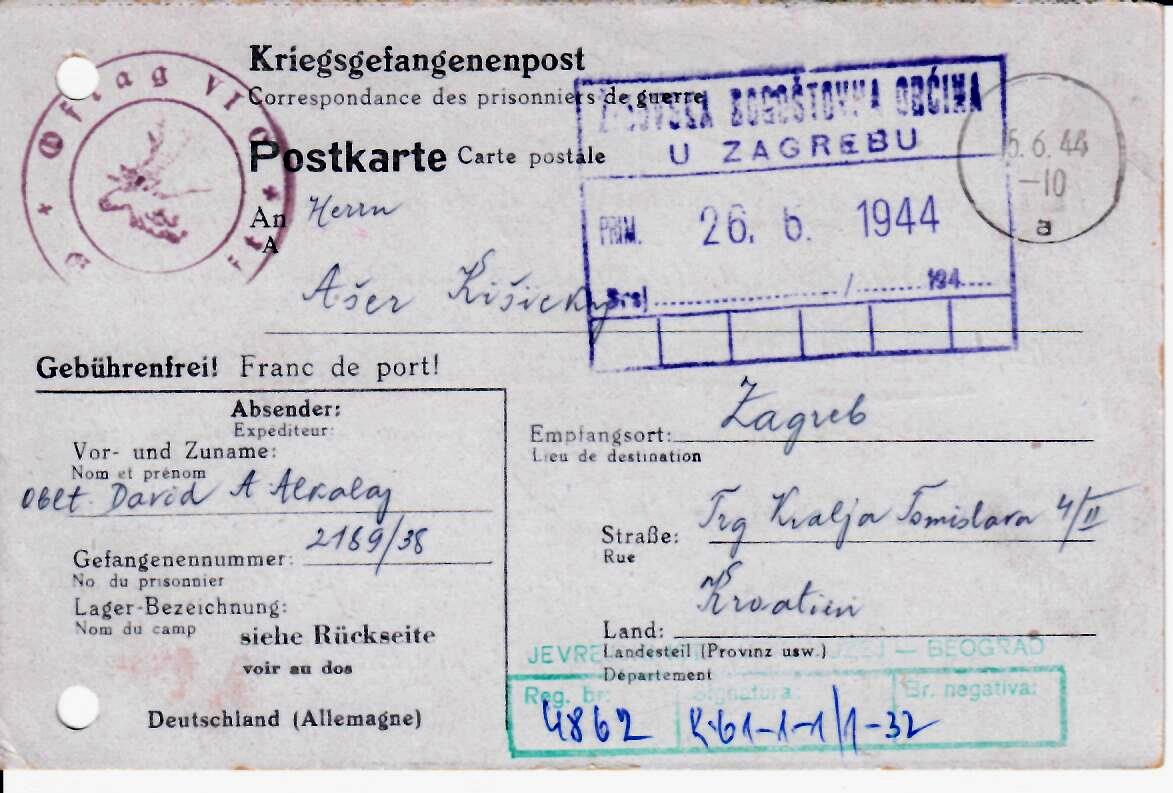 Oflag VI C
Kriegsgefangenenpost
Correspondance des prisonniers de guerre
Postkarte Carte postale
ŽIDOVSKA BOGOŠTOVNA OBĆINA
U ZAGREBU
PRIM. 26. 6. 1944
Broj / 194
5.6.44
-10
a
An Herrn
A
Ašer Kišicky
Gebührenfrei! Franc de port!
Absender:
Expéditeur:
Vor- und Zuname:
Nom et prénom
Oblt. David A Alkalaj
Gefangenennummer: 2189/38
No du prisonnier
Lager-Bezeichnung:
Nom du camp
siehe Rückseite
voir au dos
Deutschland (Allemagne)
Empfangsort: Zagreb
Lieu de destination
Straße: Trg Kralja Tomislava 4/II
Rue
Kroatien
Land:
Landesteil (Provinz usw.)
Département
JEVREJSKI MUZEJ — BEOGRAD
Reg. br: Signatura: Br. negativa:
4862 K-61-1-1/1-32